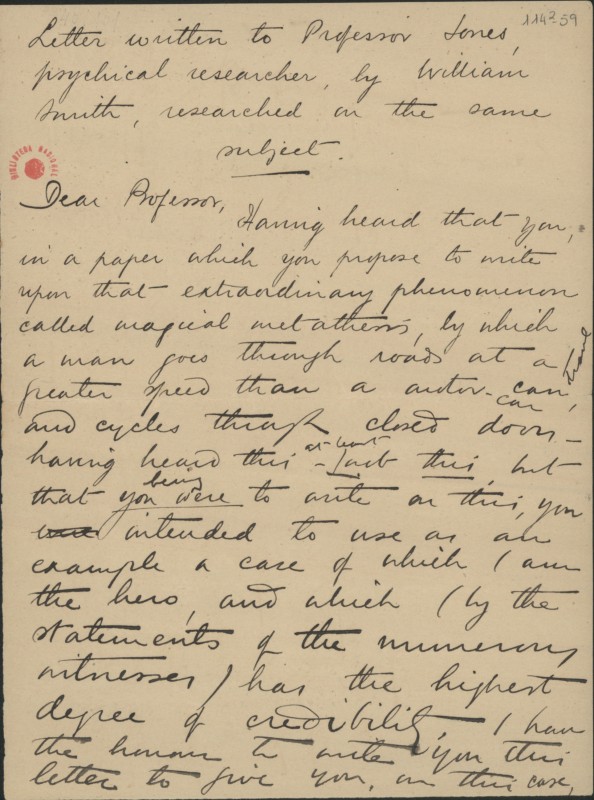 114²-59
Letter written to Professor Jones,
psychical researcher, by William
Smith, researched on the same
subject.
BIBLIOTECA NACIONAL
Dear Professor,
Having heard that you,
in a paper which you propose to write
upon that extraordinary phenomenon
called magical metathesis, by which
a man goes through roads at a
greater speed than a motor-can,
car
and cycles through closed doors –
at least
having heard this – not this, but
being
that you were to write on this, you
were intended to use as an
example a case of which I am
the hero, and which (by the
statements of the numerous
witnesses) has the highest
degree of credibility, I have
the honour to write you this
letter to give you, on this case,